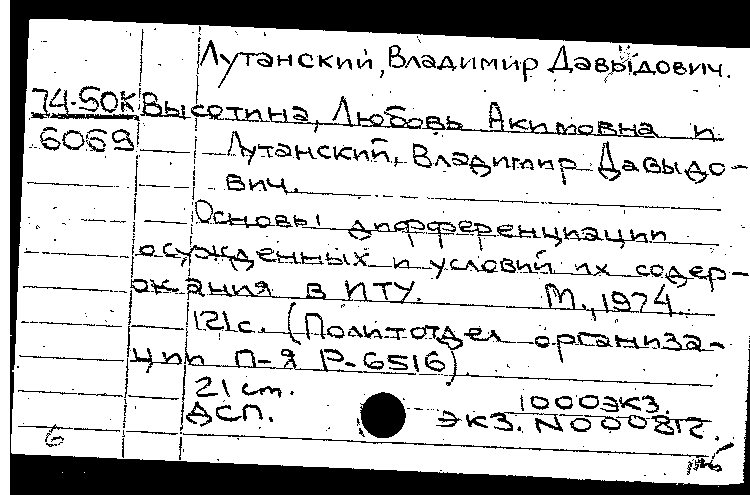 Лутанский, Владимир Давыдович.
74-50К Высотина, Любовь Акимовна и
6069 Лутанский, Владимир Давыдо-
вич.
Основы дифференциации
осужденных и условий их содер-
жания в ИТУ. М., 1974.
121с. (Политотдел организа-
ции п-я Р-6516)
21 см. 1000экз.
ДСП. экз. N000812.
6